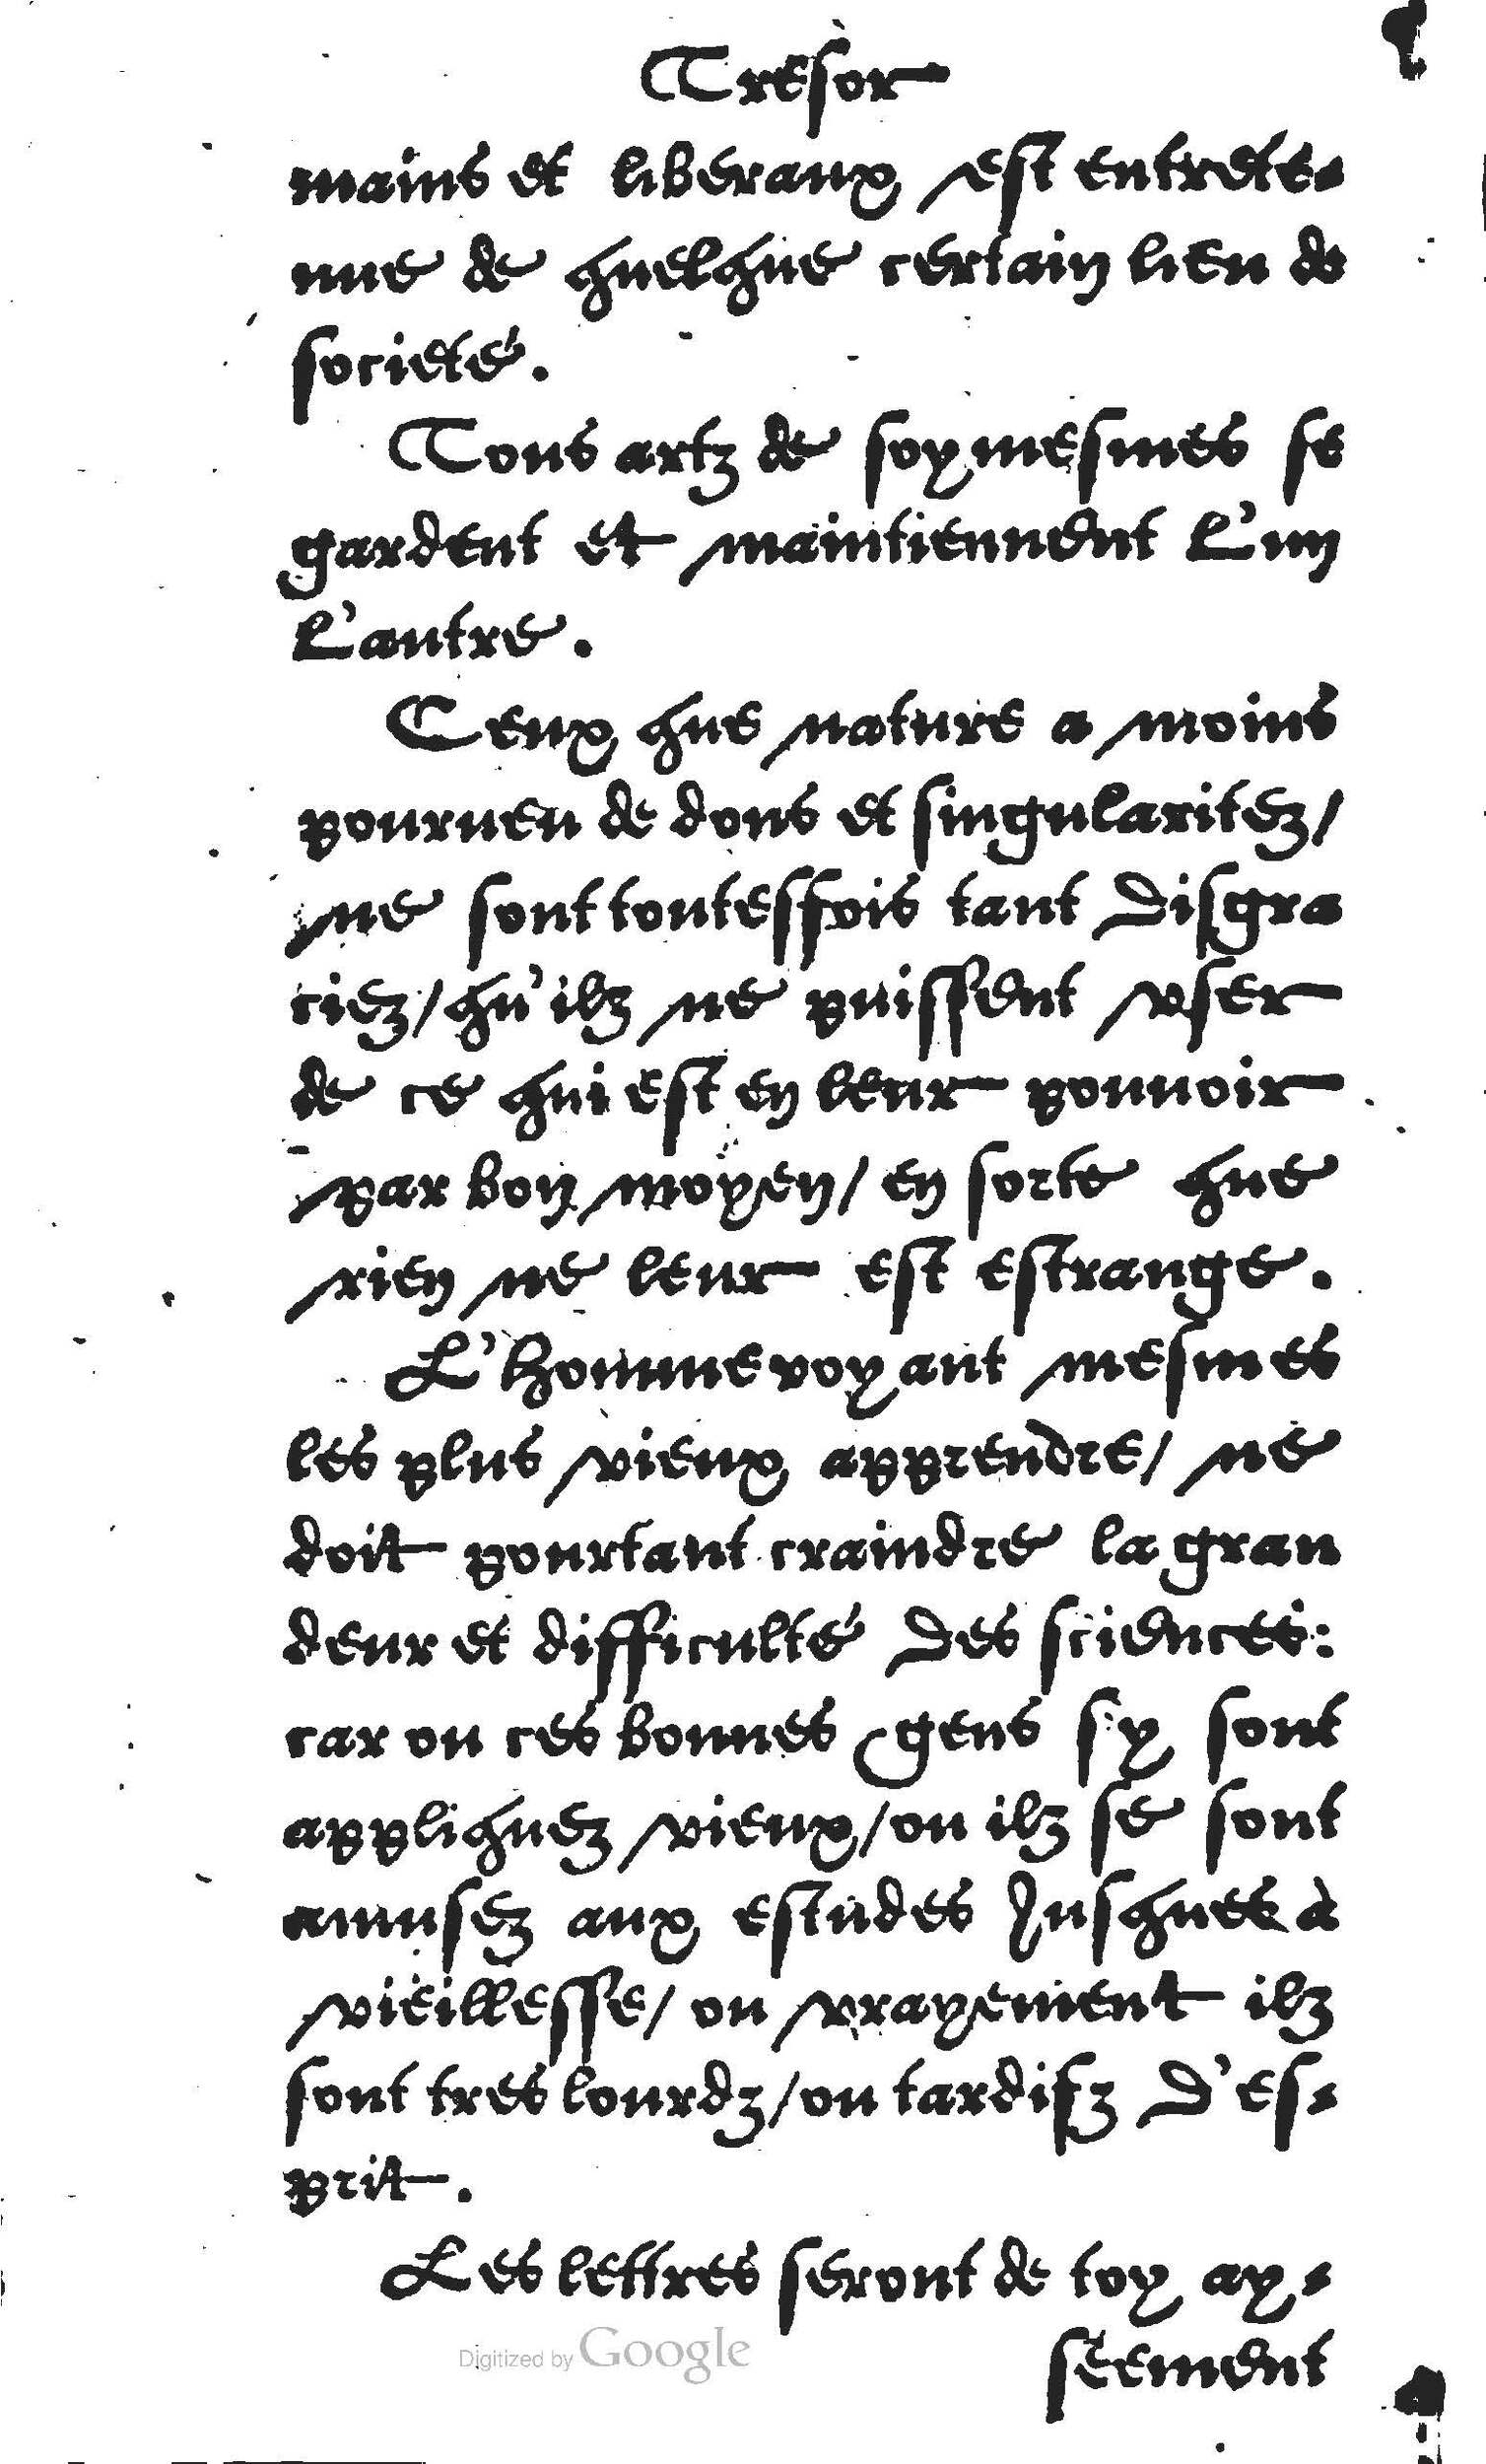 Tresor
mains et liberaux est entrete-
nue de quelque certain lien de
societé.
Tous artz de soymesmes se
gardent et maintiennent l'un
l'autre.
Ceux que nature a moins
pourueu de dons et singularitez/
ne sont toutesfois tant disgra
ciez/qu'ilz ne puissent vser
de ce qui est en leur pouuoir
par bon moyen/ en sorte que
rien ne leur est estrange.
L'homme voyant mesmes
les plus vieux apprendre/ ne
doit pourtant craindre la gran
deur et difficulté des sciences:
car ou ces bonnes gens s'y sont
appliquez vieux/ou ilz se sont
amusez aux estudes Iusques à
vieillesse/ ou vrayement ilz
sont tres lourdz/ou tardifz d'es-
prit.
Les lettres seront de toy ay-
séement
Digitized by Google